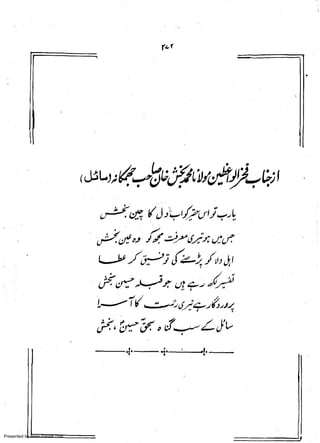 ۲۷۲
از جناب فخر الواعظین مولانا محمد بخش خان صاحب جھمکانہ (سائل)
یارب تو اس حقیر کو اب دل کا چین بخش
جس میں ہو تیری معرفت مجھ کو وہ عین بخش
اہل ولا کو پڑھنے کی توفیق کر عطا
تفسیر لکھ رہے ہیں جو قبلہ حسین بخش
پروردگار ہے تیری رحمت کا آسرا
سائل کے سب گناہ بحق حسینؑ، بخش
Presented by